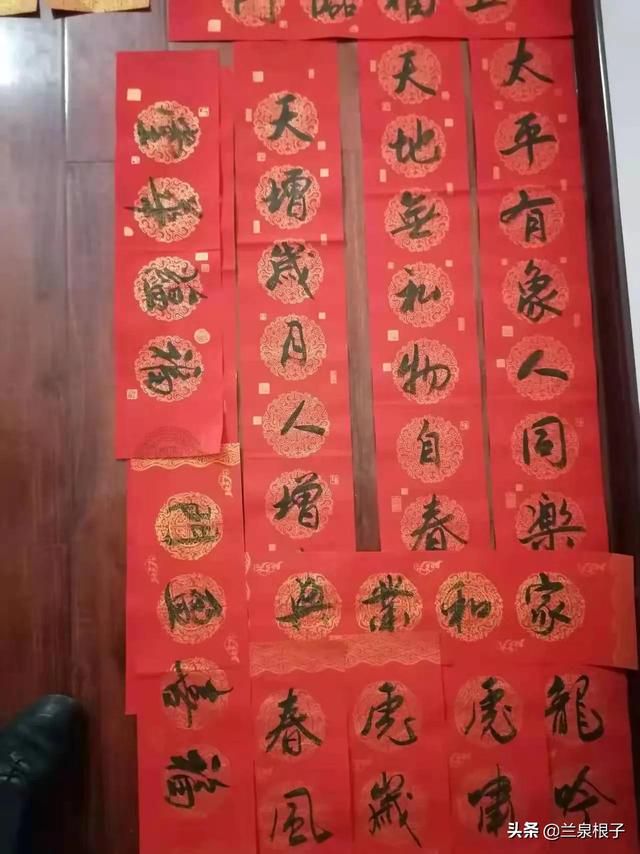 五福臨門
太平有象人同楽
天地無私物自春
天增歲月人增
家和業興
龍吟
虎嘯
虎歲
春風
头条 @兰泉根子